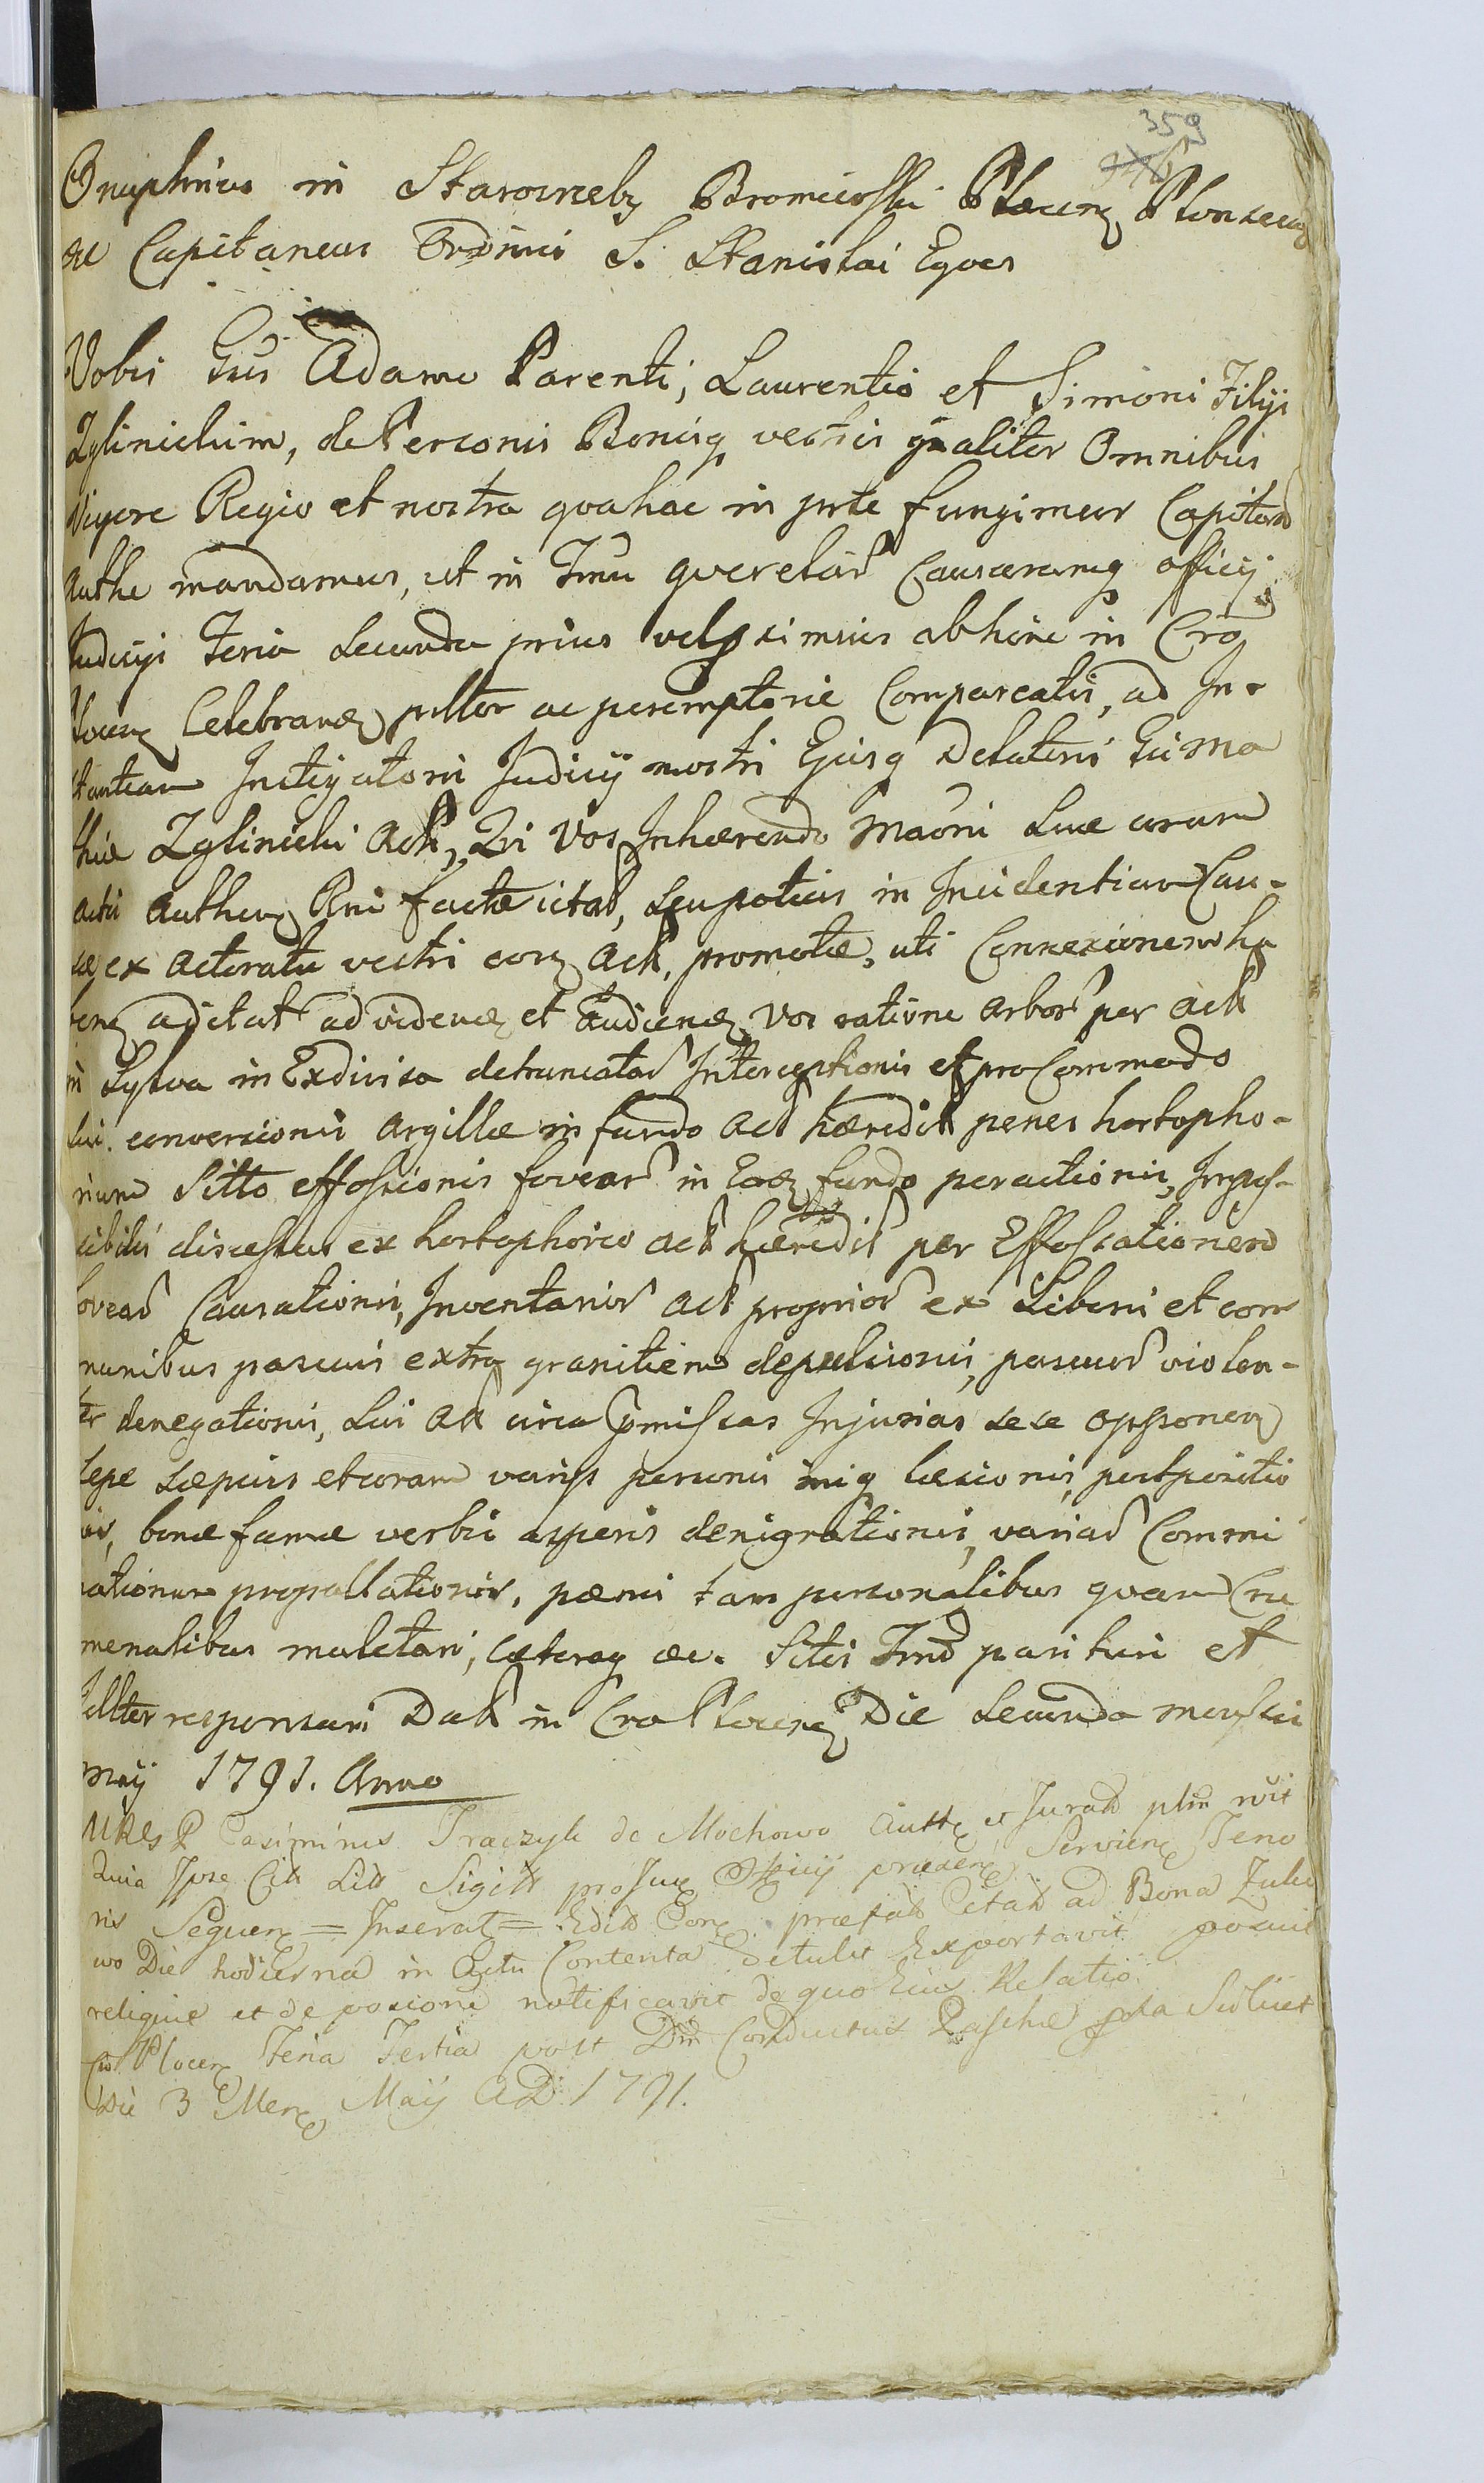 359
Onuphrius in Starorzeby Bromierski Plocen Plonscen
ac Capitaneus Ordinis S. Stanislai Eques
Vobis Gsis Adamo Parenti, Laurentio et Simoni Filijs
Zglinickim, de Personis Bonisq vestris gnaliter Omnibus
Vigore Regia et nostra qva hac in prte fungimur Capitan
Authe mandamus, ut in Tmn querelar Causarumq officij
Judicijs Feria Secunda prius vel psimius abhinc in Cro
Plocen Celebran psltter ac peremptorie Compareatis, ad In-
stantiam Instigatoris Judicij nostri Ejusq Delatoris Gsi Ma
thiæ Zglinicki Act, Qui Vos Inhærendo Maoni Suæ coram
Actis Authen Pni factæ citat, seu potius in Incidentiam Cau-
sæ ex Actoratu vestri con Act, promotæ, uti Connexionem ha
ben adcitat ad viden et Audien Vos ratione arbor per Act
in Sylva in Exdivisa detruncatar Interceptionis et pro Commodo
sui conversionis argillæ in fundo Act hæredit penes hortopho-
rium Sitto effossionis fovear in Eod fundo peractionis, Impos-
sibilis discessus ex hortophorio Act hæredit per Effossationem
fovear Causationis, Inventarior Act proprior ex Liberis et com
munibus pascuis extra granitiem depulsionis, pascuor violen-
ter denegationis, Sui Act circa pmissas Injurias sese opponen
sepe sæpius et coram varijs personis imiq læsionis, postpositio
nis, bonæ famæ verbis asperis denigrationis, variar Commi
nationum propallationis, pænis tam personalibus quam Cru
menalibus mulctari, cæteraq &c. Sitis Tmo parituri et
Jllter responsuri Dat in Cro Plocen Die Secunda mensis
Maij 1791. Anno
Casimirus Traczyk de Mochowo Autt et Jurat plm nvit
Quia Ipse Cit Litt Sigill pro Jux Officij præsen Servien Teno
ris Sequen = Inserat = Edit Con præfat Citat ad Bona
wo Die hodierna in Actu Contenta Detulit Exportavit posuit
reliquit et de posicone notificavit de quo Eius Relatio.
Cro Plocen Feria Tertia post Dm Conductus Paschæ pxa Scilicet
Die 3 Men Maij AD. 1791.